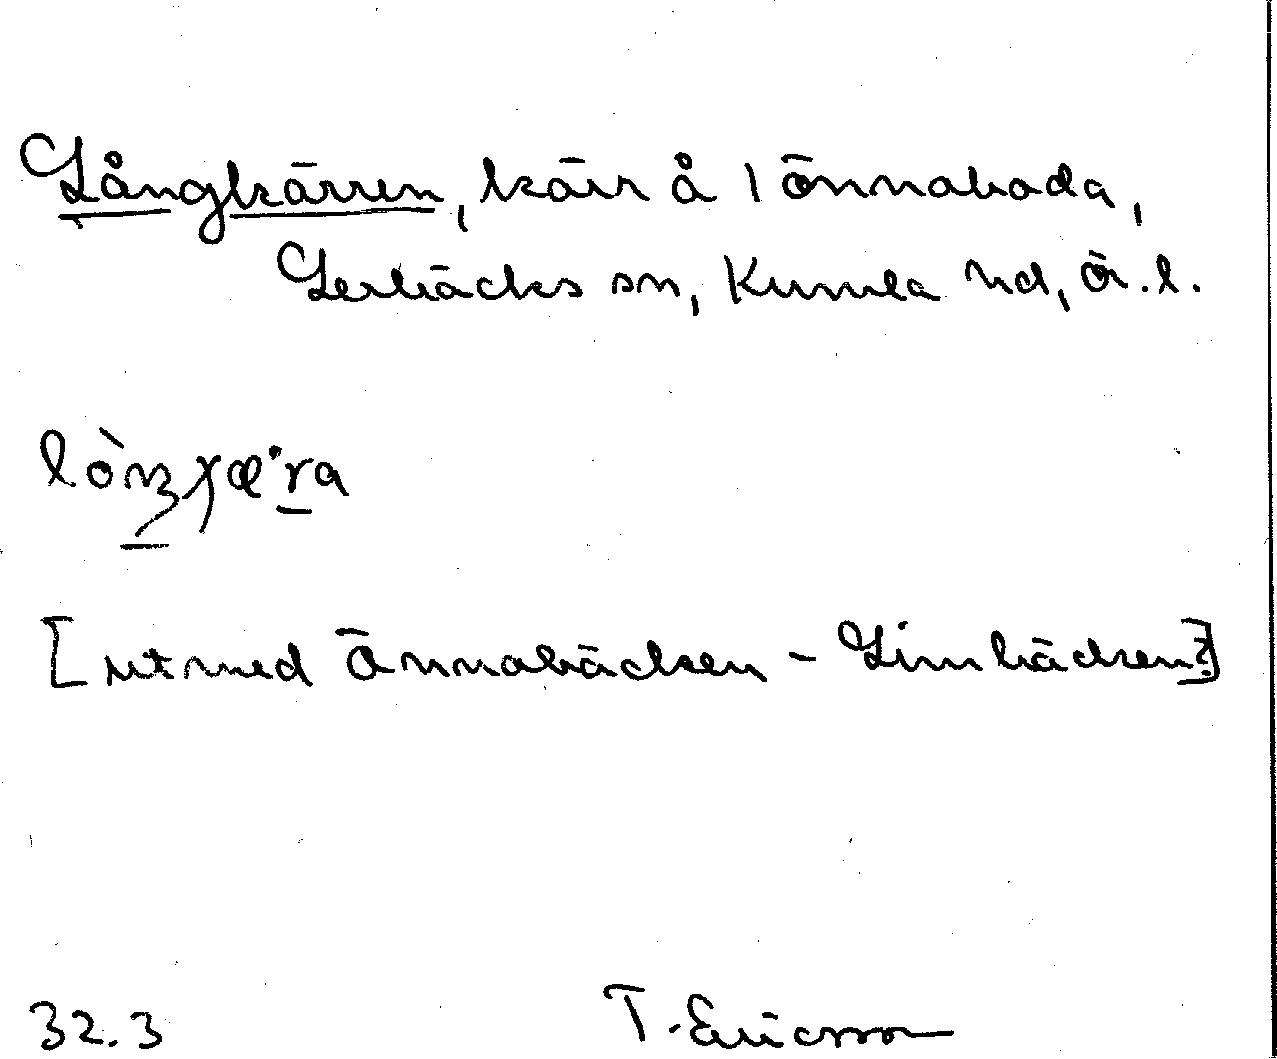 Långkärren, kärr å 1 Önnaboda,
Lerbäcks sn, Kumla hd, Ör. l.
[utmed Önnabäcken - Limbäcken?]
32.3 T. Ericsson